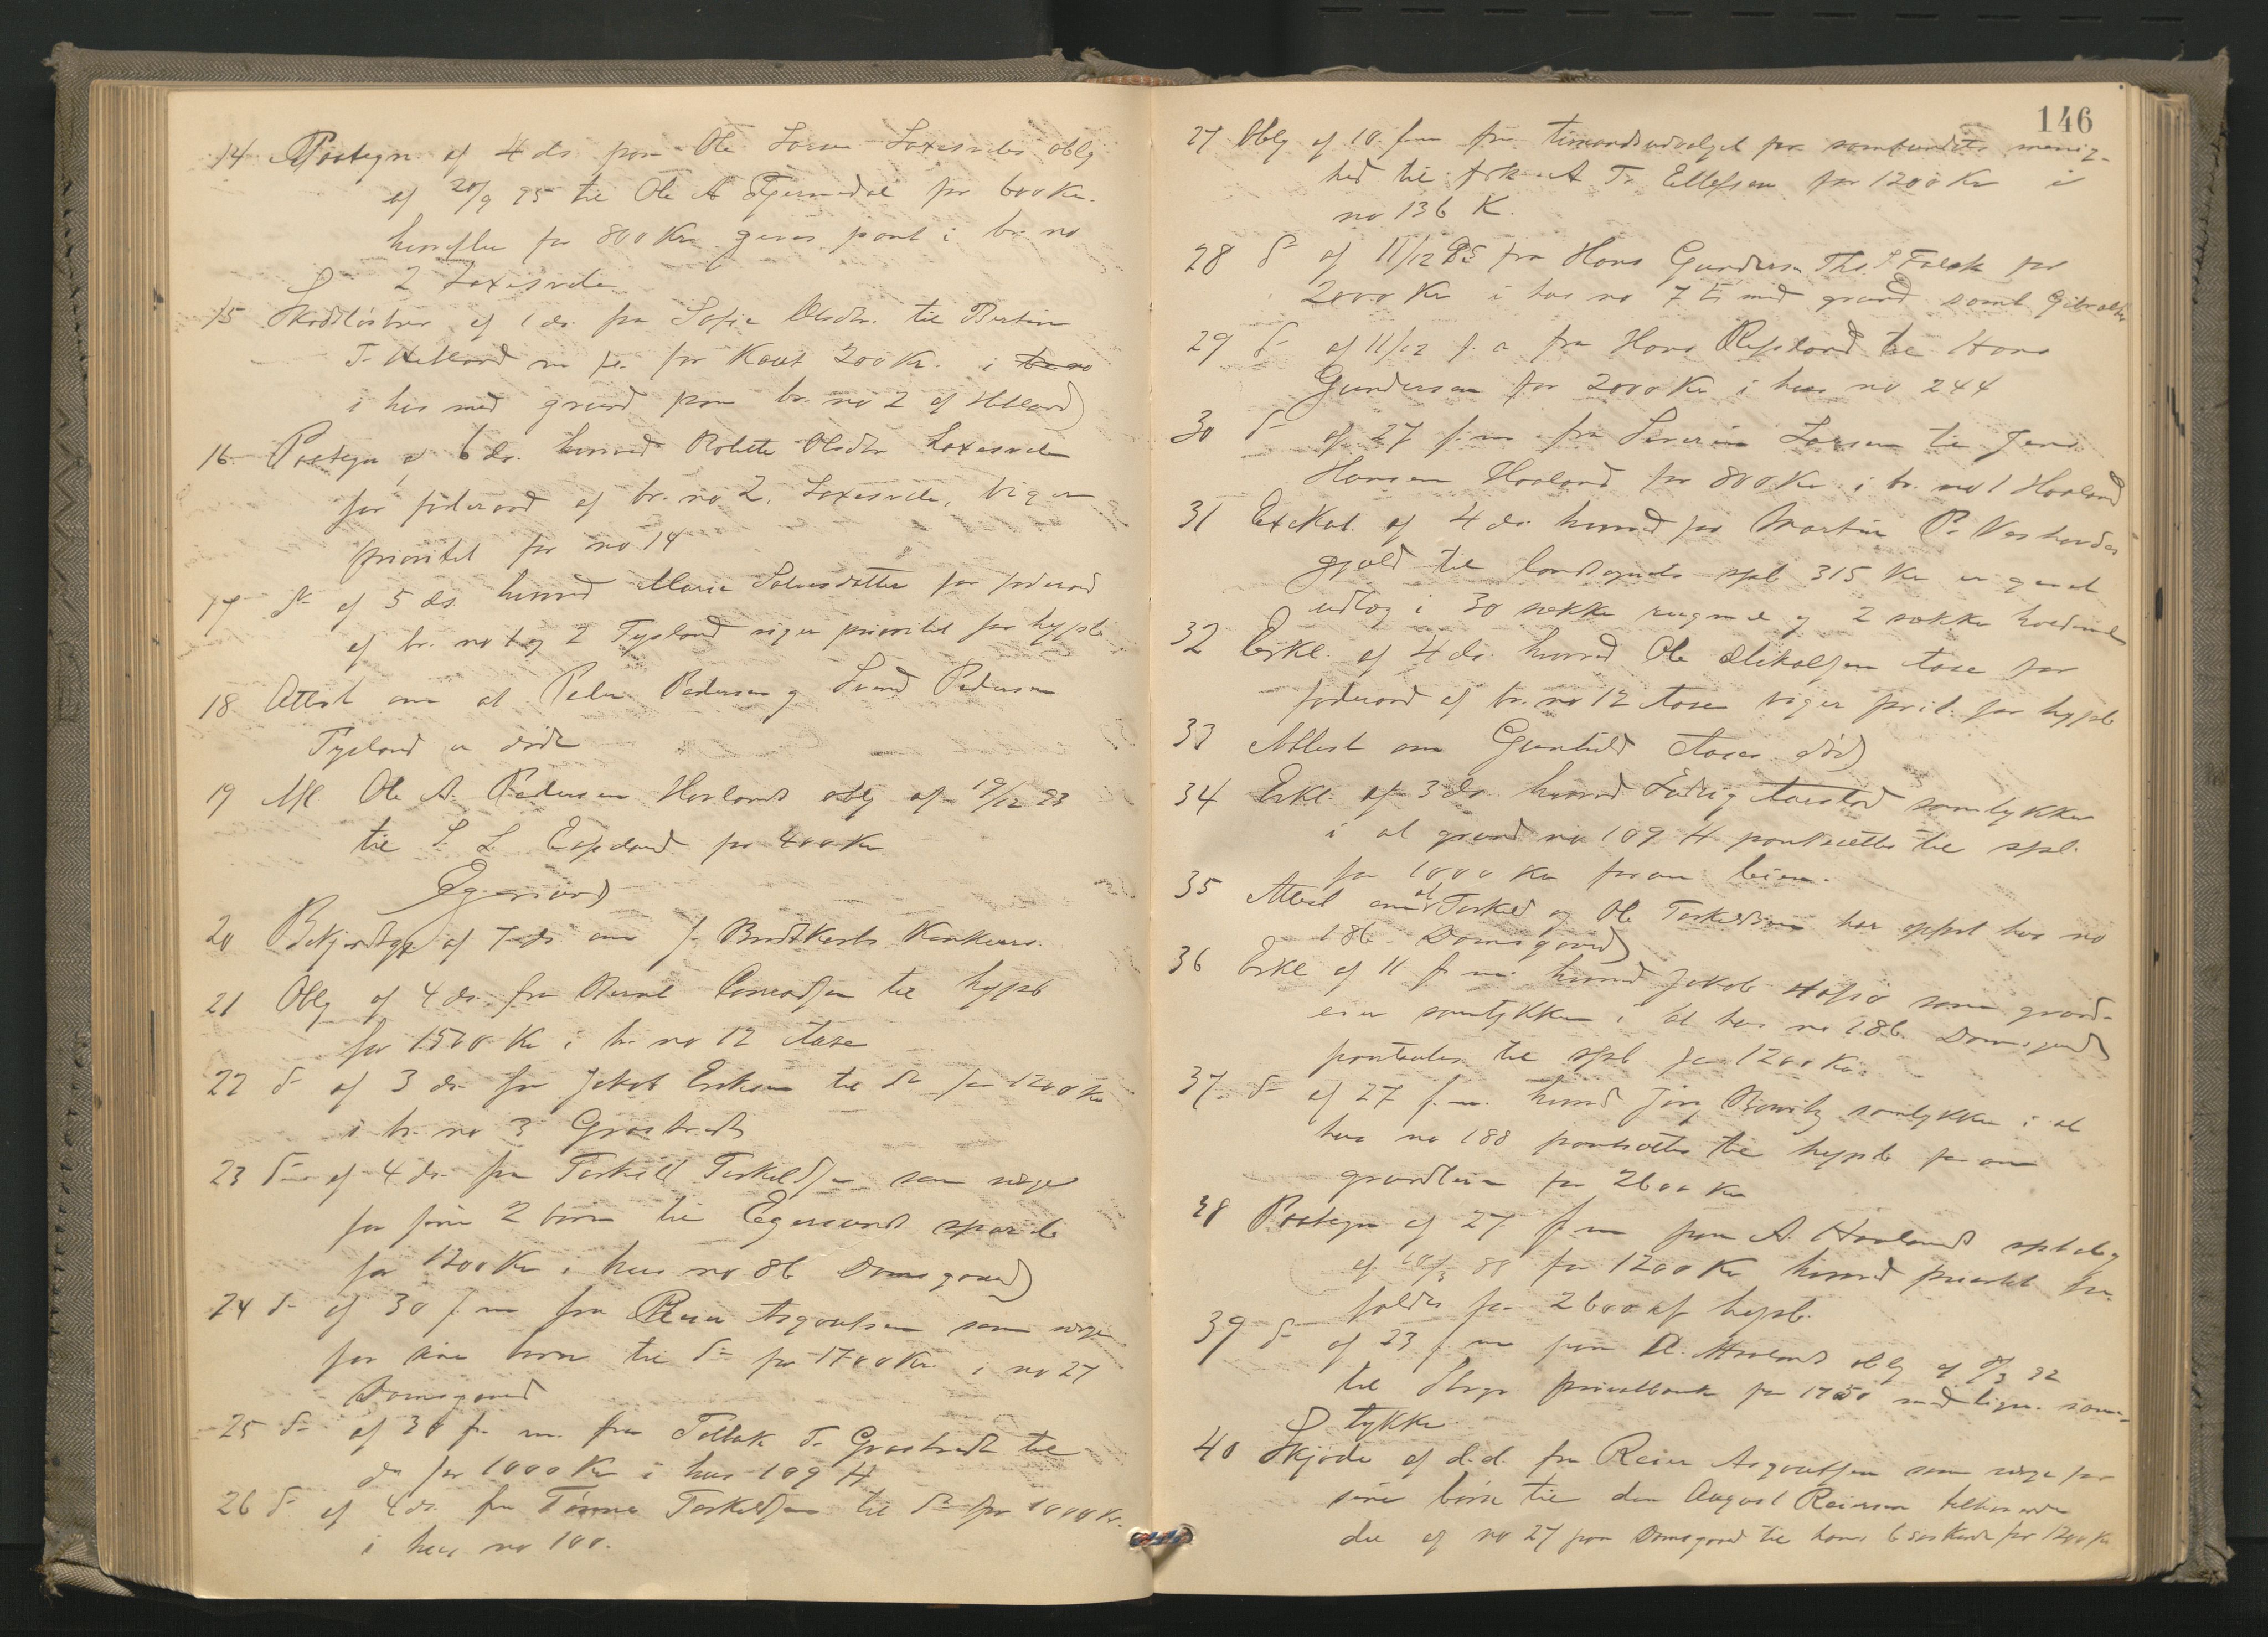 14 Paategn. af 4 ds. paa Ole Larsen Laxesvelas oblg
af 20/9 95 til Ole A Fjermedal for 600 Kr.
hvorefter for 800 Kr. gives pant i br. no
2 Laxesvela
15 Skadesløsbrev af 1 ds. fra Sofie Olsdtr. til Bertin
T. Hetland m fl. for Kaut 200 Kr. i br. no
i hus med grund paa br. no 2 af Hetland
16 Paategn af 6 ds. hvorved Rolette Olsdtr Laxesvela
for føderaad af br. no 2, Laxesvela, viger
prioritet for no 14
17 do af 5 ds. hvorved Maria Salvesdatter for føderaad
af br. no 1 og 2 Tysland viger prioritet for hypb
18 Attest om at Peder Pedersen og Svend Pedersen
Tysland er døde
19 Afl Ole A. Pedersen Havlands oblg af 19/12 93
til S. S. Espeland for 400 Kr
Egersund
20 Bekjendtgj af 7 ds om J. Brodtkorbs Konkurs.
21 Oblg af 4 ds. fra Bernt Conradsen til hypb
for 1500 Kr i br. no 12 Aase
22 do af 3 ds. fra Jakob Eriksen til do for 1200 Kr
i br. no 3 Grastveit
23 do af 4 ds. fra Torkild Torkildsen som verge
for sine 2 børn til Egersunds spareb
for 1200 Kr i hus no 86 Damsgaard
24 do af 30 f m fra Reier Asgautsen som verge
for sine børn til do for 1700 Kr. i no 27
Damsgaard
25 do af 30 f. m. fra Tollak T. Grastveit til
do for 1000 Kr i hus 109 H
26 do af 4 ds. fra Tønnes Torkildsen til do for 1000 Kr.
i hus no 100.
146
27 Oblg af 10 f.m fra timandsudvalget for samfundets menig-
hed til frk. A T. Ellefsen for 1200 Kr i
no 136 K.
28 do af 11/12 95 fra Hans Gundersen Ths S. Falck for
2000 Kr i hus no 7 E med grund samt Gibraltar
29 do af 11/12 f. a fra Hans Refsland til Hans
Gundersen for 2000 Kr i hus no 244
30 do af 27 f. m. fra Severin Larsen til Jens
Hansen Havland for 800 Kr i br. no 1 Havland
31 Exekut. af 4 ds. hvorved for Martin P. Veshovdas
gjæld til landsogndets spb 315 Kr er gjort
udlæg i 30 sække rugmel og 2 sække hvedemel
32 Erkl. af 4 ds. hvorved Ole Mikalsen Aase for
føderaad af br. no 12 Aase viger prit. for hypb
33 Attest om Gunhild Aases død
34 Erkl. af 3 ds. hvorved Ludvig Aarstad samtykker
i at grund no 109 H. pantsættes til spb.
for 1000 Kr foran leien.
35 Attest om at Torkild og Ole Torkildsen har opført hus no
186 Damsgaard
36 Erkl af 11 f. m. hvorved Jakob Hafsø som grund-
eier samtykker i at hus no 186 Damsgaard
pantsættes til spb for 1200 Kr.
37. do af 27 f. m. hvorved Jørg Bowitz samtykker i at
hus no 188 pantsættes til hypb foran
grundleien for 2600 Kr
38 Paategn af 27 f. m paa A. Havlands spb oblg
af 88 for 1200 Kr hvorved prioritet fra-
faldes for 2600 af hypb.
39 do af 23 f. m paa A. Havlands oblg af 92
til Stvgr privatbank for 1750 med lign. sam-
tykke
40 Skjøde af d.d. fra Reier Asgautsen som verge for
sine børn til den August Reiersen tilhørende
del af no 27 paa Damsgaard til hans 6 søskende for 1200 Kr